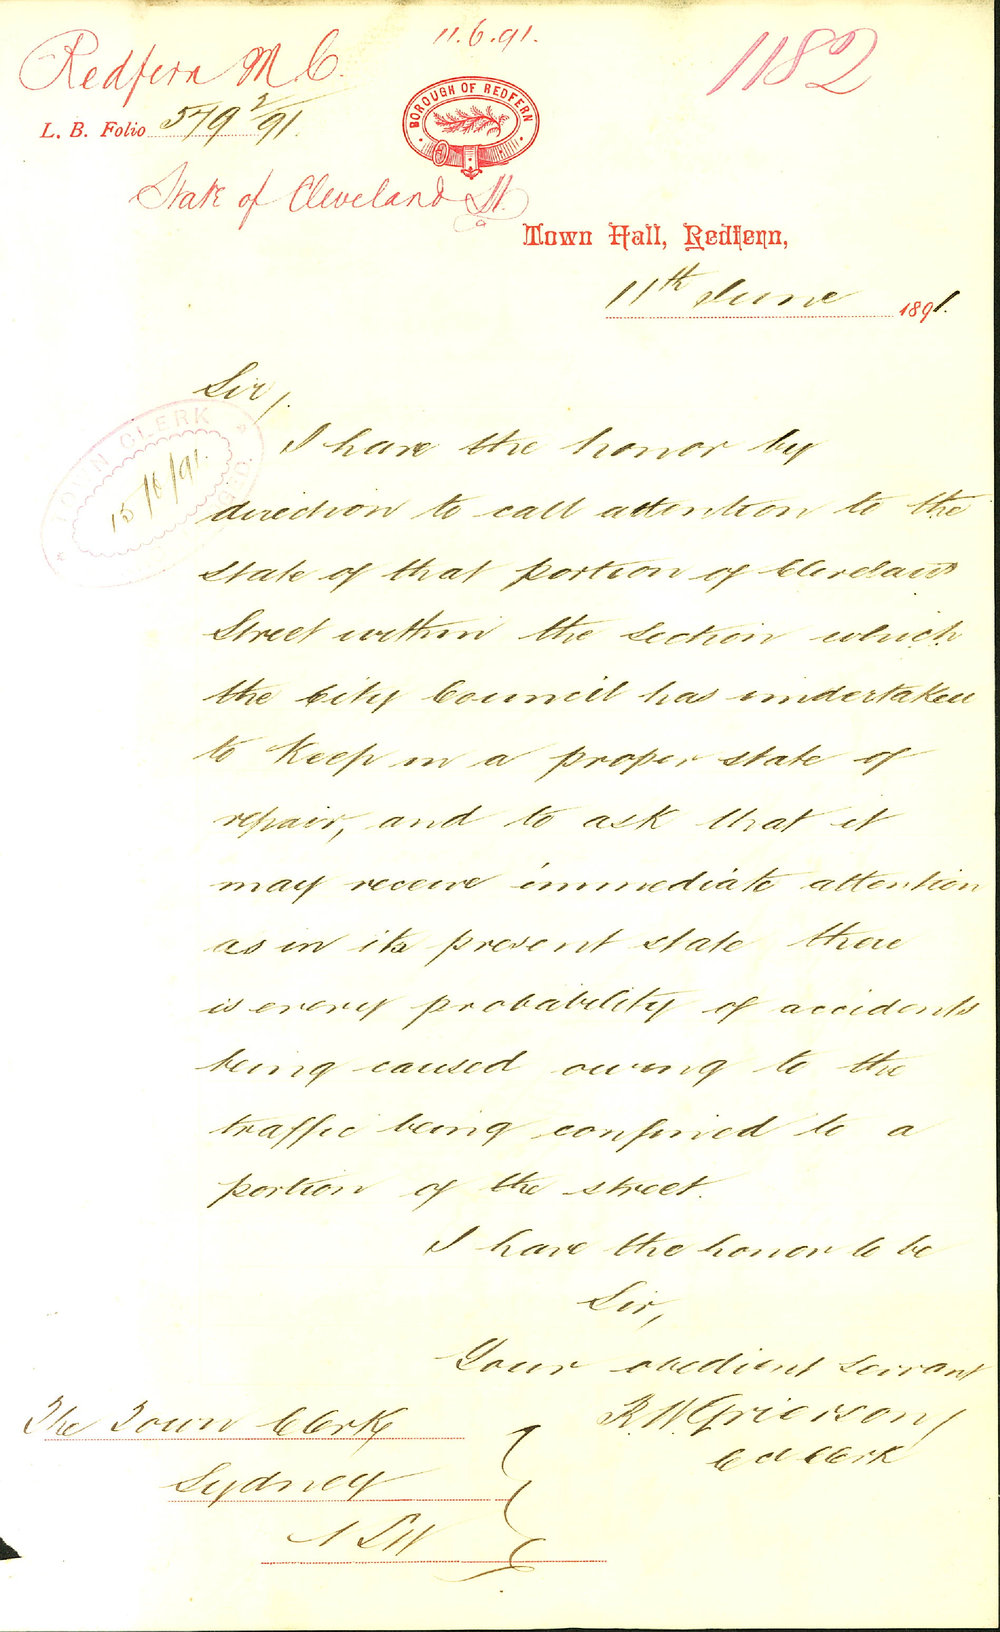 Redfern M. C.
11.6.91.
1182
BOROUGH OF REDFERN
L. B. Folio 579 2/91.
State of Cleveland St.
Town Hall, Redfern,
11th June 1891.
Sir,
TOWN CLERK
15/6/91.
I have the honor by
direction to call attention to the
state of that portion of Cleveland
Street within the section which
the City Council has undertaken
to keep in a proper state of
repair, and to ask that it
may receive immediate attention
as in its present state there
is every probability of accidents
being caused owing to the
traffic being confined to a
portion of the street.
I have the honor to be
Sir,
Your obedient servant
R.W. Grierson
Cl Clerk
The Town Clerk
Sydney
NSW